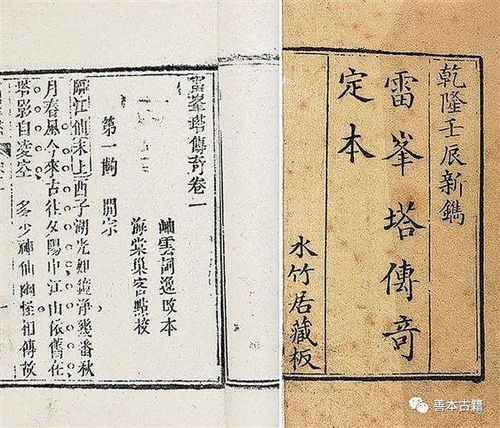 乾隆壬辰新鐫
雷峯塔傳奇
定本
水竹居藏板
雷峯塔傳奇卷一
岫雲詞逸改本
海棠巢客點校
第一齣 開宗
臨江仙末上西子湖光如鏡淨幾番秋
月春風今來古往夕陽中江山依舊在
塔影自凌空 多少神仙幽怪相傳故
善本古籍